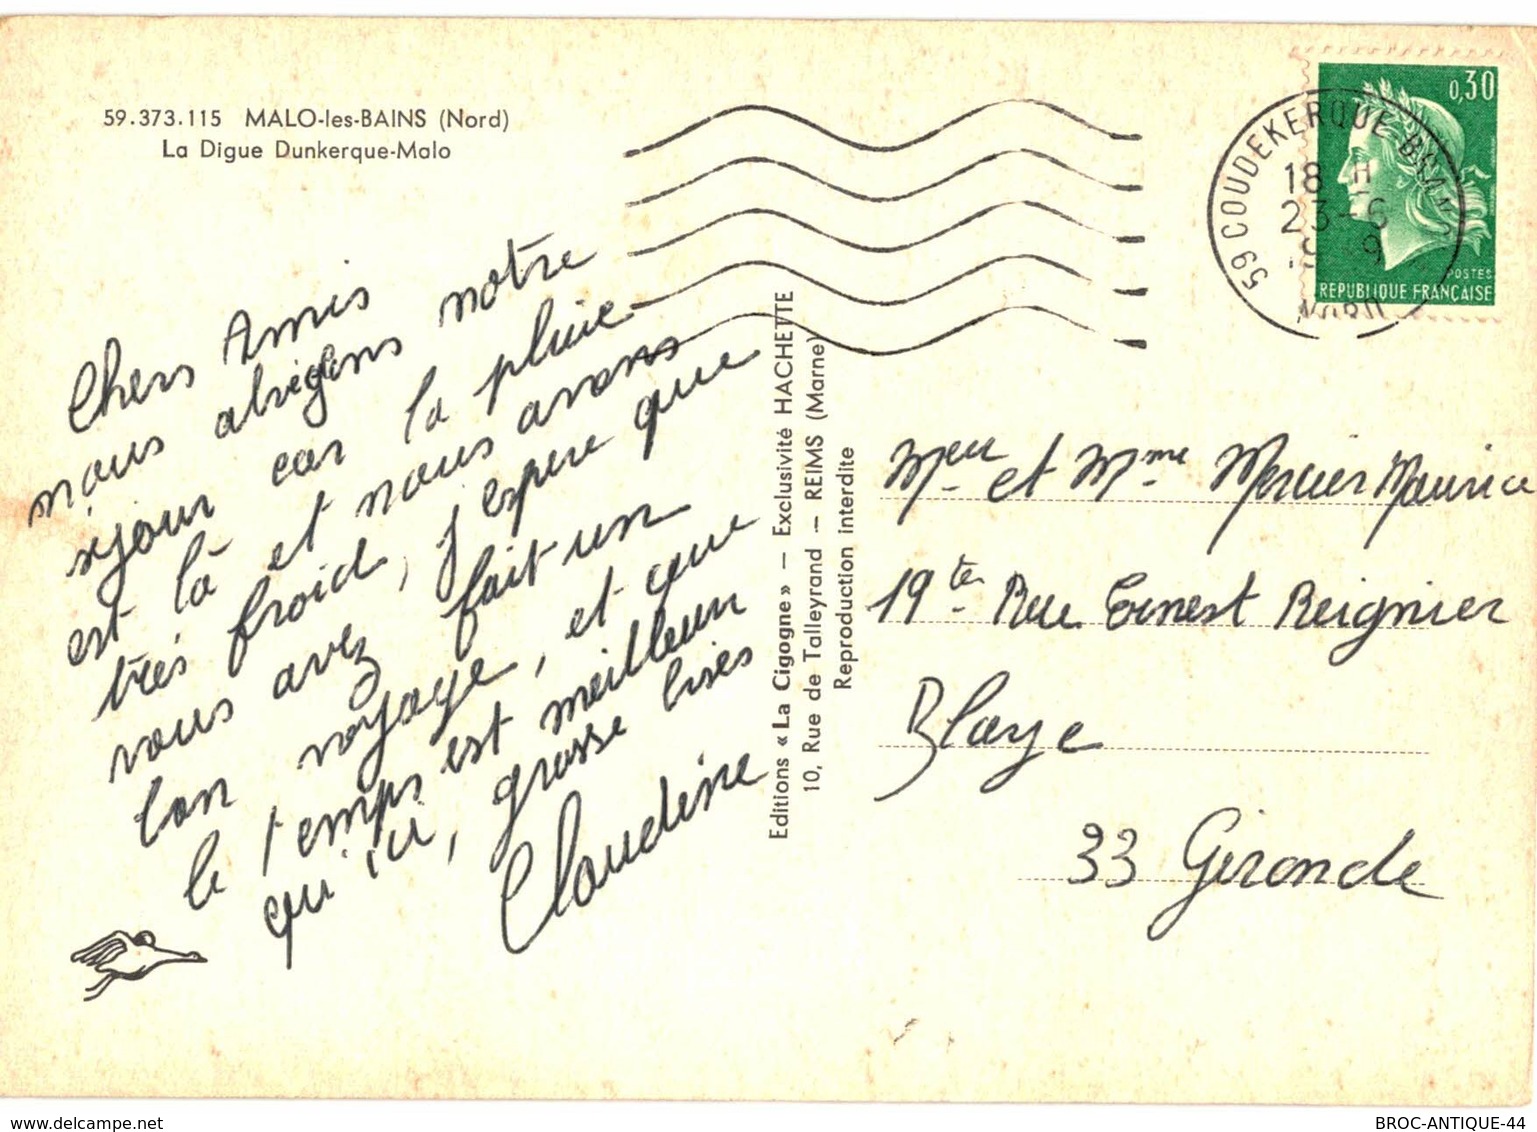 59.373.115 MALO-les-BAINS (Nord)
La Digue Dunkerque-Malo
Chers Amis
nous abrégeons notre
séjour car la pluie
est là et nous avons
très froid, j'espere que
vous avez fait un
bon voyage, et que
le temps est meilleur
qu'ici, grosse bises
Claudine
Editions « La Cigogne » — Exclusivité HACHETTE
10, Rue de Talleyrand — REIMS (Marne)
Reproduction interdite
0,30
POSTES
REPUBLIQUE FRANÇAISE
59 COUDEKERQUE-
18 H
23-6
et Mme Mercier Maurice
19 ter Rue Ernest Reignier
Blaye
33 Gironde
www.delcampe.net
BROC-ANTIQUE-44